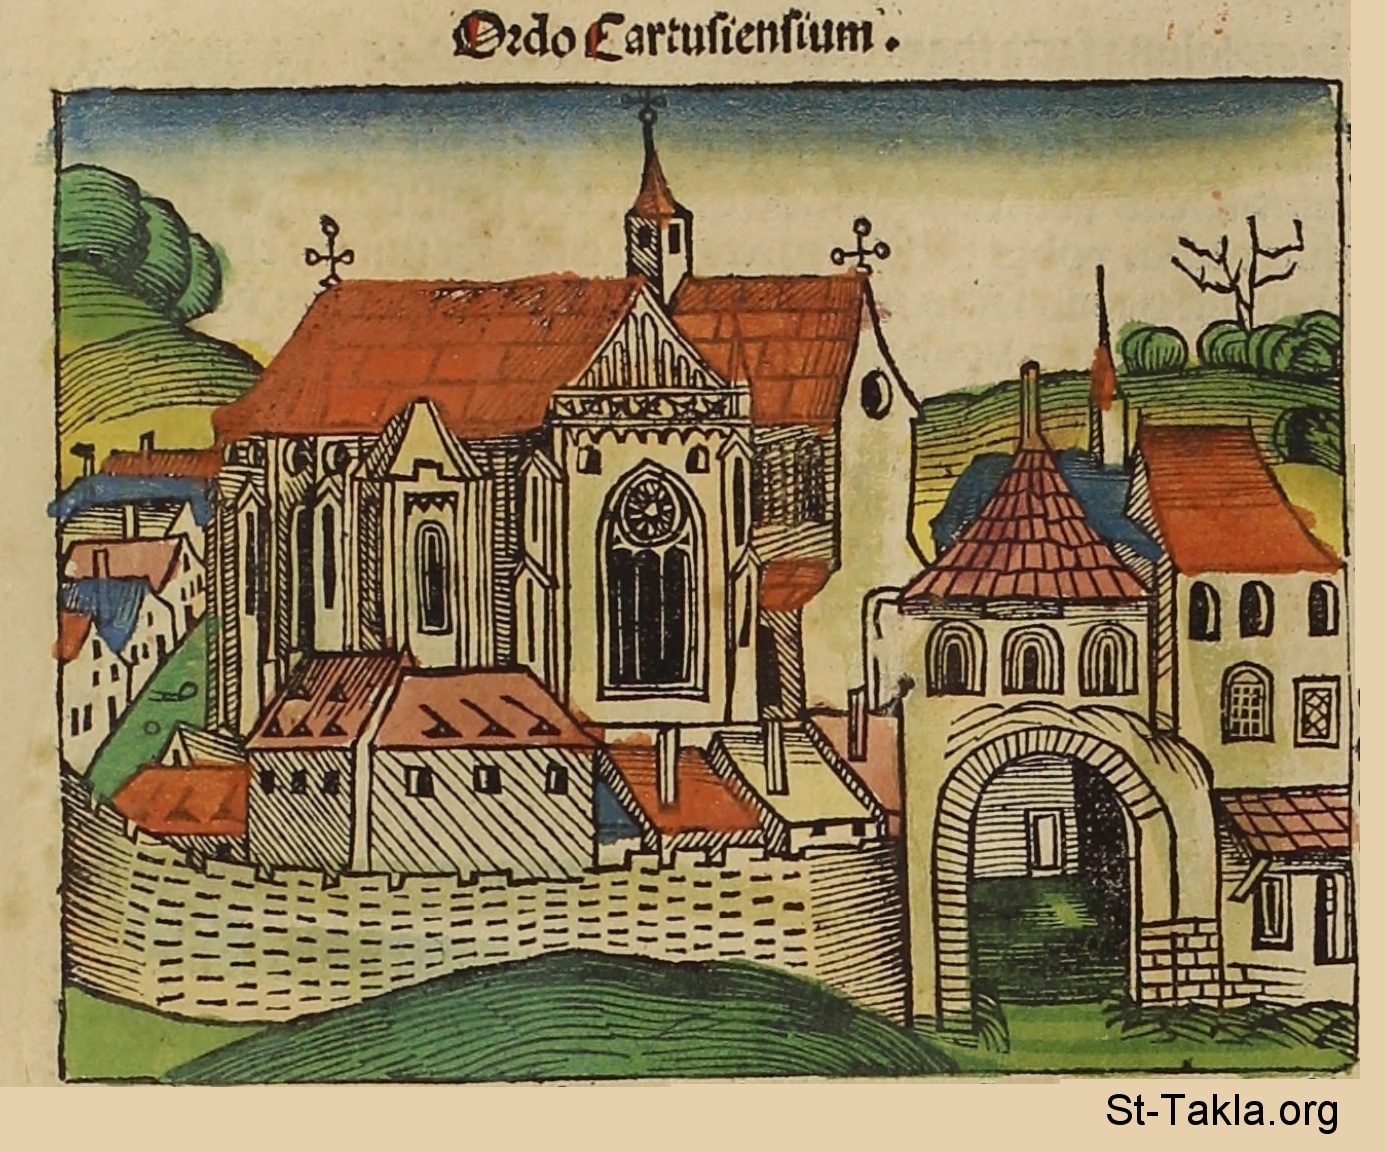 Ordo Cartusiensium.
St-Takla.org